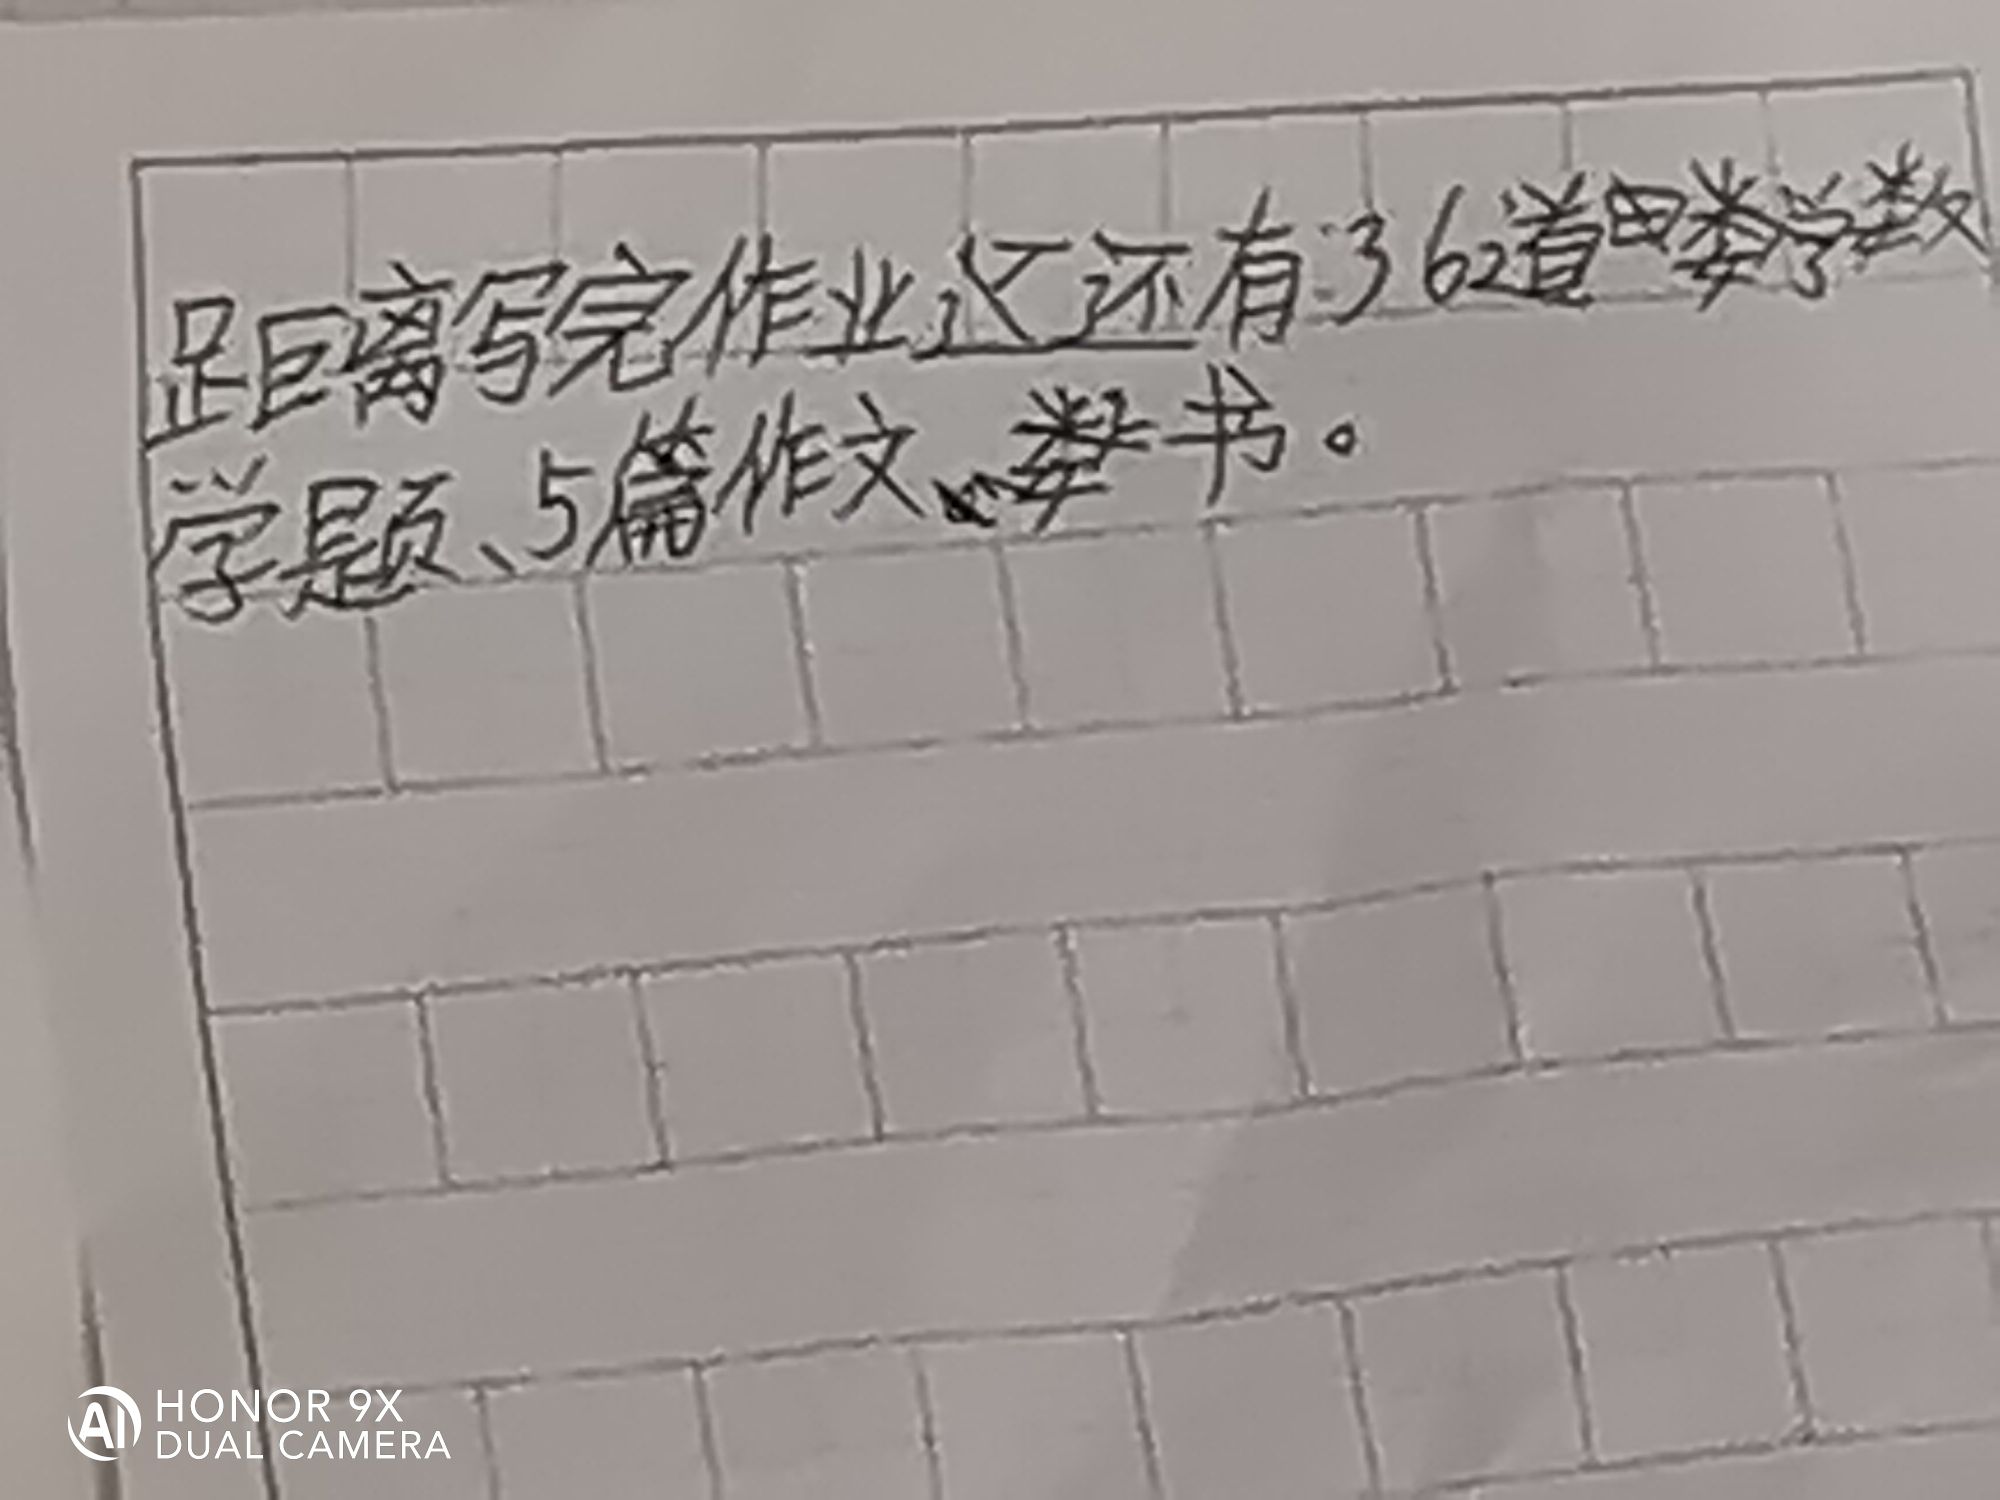 距离写完作业还还有362道数学数
学题、5篇作文、书。
HONOR 9X
DUAL CAMERA